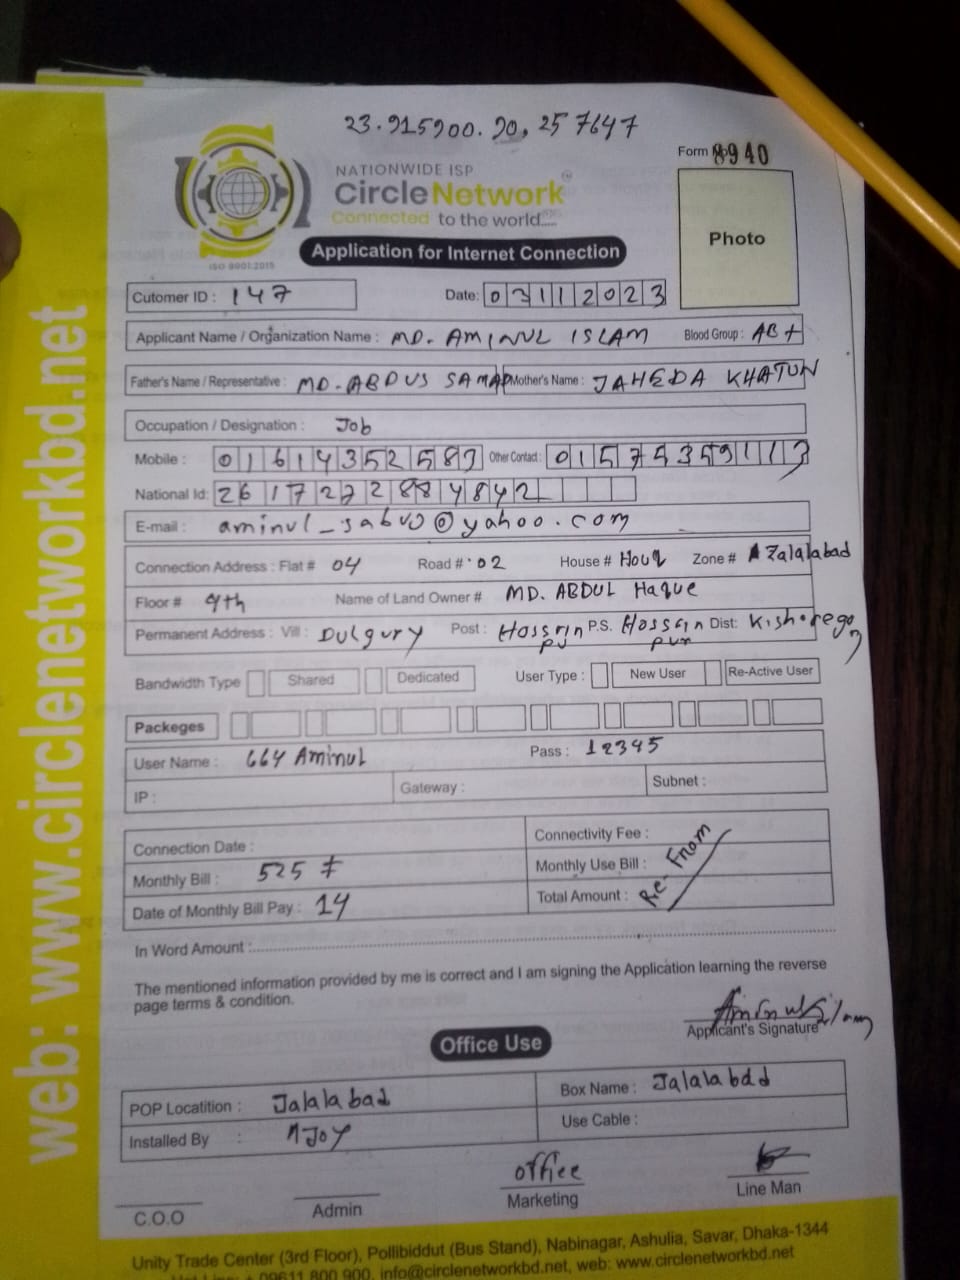 23.915900. 90, 25 7647
Form No 8940
NATIONWIDE ISP
CircleNetwork
Connected to the world.....
ISO 9001:2015
Application for Internet Connection
Photo
Cutomer ID : 147
Date: 03112023
Applicant Name / Organization Name : MD. AMINUL ISLAM Blood Group : AB+
Father's Name / Representative : MD. ABDUS SAMAD Mother's Name : JAHEDA KHATUN
Occupation / Designation : Job
Mobile : 01614352583 Other Contact : 01575359113
National Id: 2617272884842
E-mail : aminul_sabuj@yahoo.com
Connection Address : Flat # 04 Road # 02 House # Zone # Zalalabad
Floor # 4th Name of Land Owner # MD. ABDUL Haque
Permanent Address : Vill : Dulgury Post : Hossain pu P.S. Hossain pur Dist: Kishoregon
Bandwidth Type Shared Dedicated User Type : New User Re-Active User
Packeges
User Name : 664 Aminul Pass : 12345
IP : Gateway : Subnet :
Connection Date : Connectivity Fee :
Monthly Bill : 525 Monthly Use Bill :
Date of Monthly Bill Pay : 14 Total Amount : Re-From
In Word Amount :
The mentioned information provided by me is correct and I am signing the Application learning the reverse
page terms & condition.
Applicant's Signature
Office Use
POP Locatition : Jalalabad Box Name : Jalalabad
Installed By : Joy Use Cable :
office
C.O.O Admin Marketing Line Man
Unity Trade Center (3rd Floor), Pollibiddut (Bus Stand), Nabinagar, Ashulia, Savar, Dhaka-1344
09611 800 900, info@circlenetworkbd.net, web: www.circlenetworkbd.net
web: www.circlenetworkbd.net